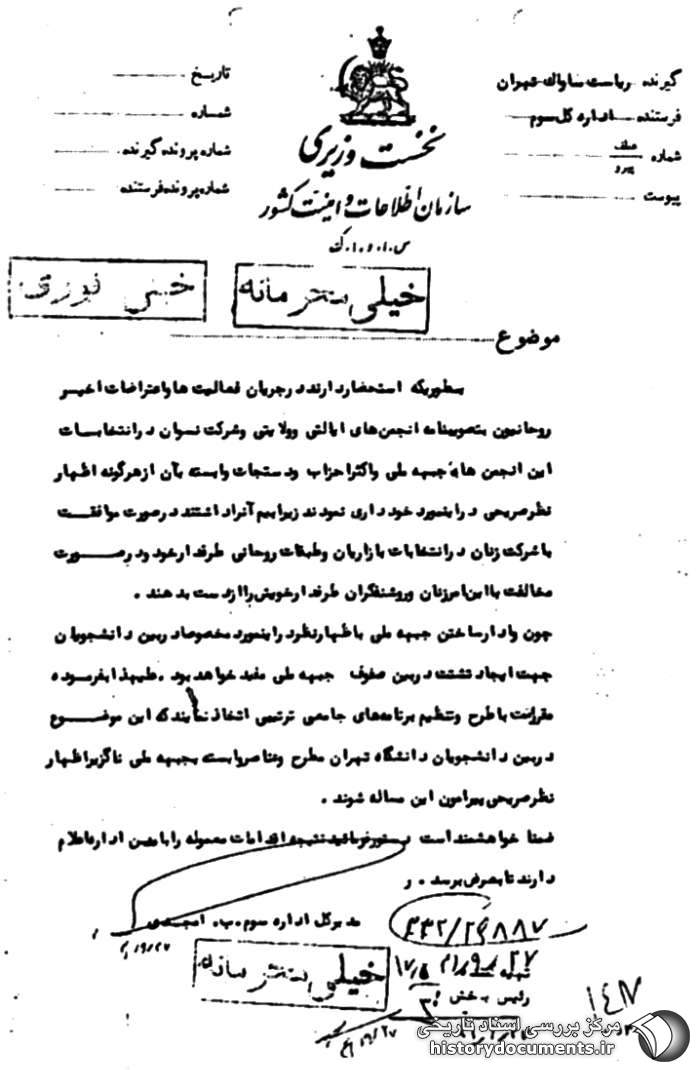 گیرنده ریاست ساواک تهران
فرستنده اداره کل سوم
شماره عطف پیرو
پیوست
نخست وزیری
سازمان اطلاعات و امنیت کشور
س.ا.و.ا.ک
تاریخ
شماره
شماره پرونده گیرنده
شماره پرونده فرستنده
خیلی محرمانه
خیلی فوری
موضوع
بطوریکه استحضار دارند در جریان فعالیت ها و اعتراضات اخیر
روحانیون بتصویبنامه انجمن های ایالتی و ولایتی و شرکت نسوان در انتخابات
این انجمن ها جبهه ملی و اکثر احزاب و دستجات وابسته بآن از هرگونه اظهار
نظر صریحی در اینمورد خودداری نمودند زیرا بیم آنرا داشتند در صورت موافقت
با شرکت زنان در انتخابات بازاریان و طبقات روحانی طرفدار خود و در صورت
مخالفت با این امر زنان و روشنفکران طرفدار خویش را از دست بدهند .
چون وادار ساختن جبهه ملی باظهار نظر در اینمورد مخصوصا در بین دانشجویان
جهت ایجاد تشتت در بین صفوف جبهه ملی مفید خواهد بود . علیهذا بفرموده
مقرر است با طرح و تنظیم برنامه های جامعی ترتیبی اتخاذ نمایند که این موضوع
در بین دانشجویان دانشگاه تهران مطرح و عناصر وابسته بجبهه ملی ناگزیر اظهار
نظر صریحی پیرامون این مساله شوند .
ضمنا خواهشمند است دستور فرمائید نتیجه اقدامات معموله را باین اداره اعلام
دارند تا بعرض برسد . ر
مدیر کل اداره سوم . ب . امجدی
۳۳۲/۲۶۸۸۷
۲۷
رئیس بخش
خیلی محرمانه
۱۴۷
مرکز بررسی اسناد تاریخی
historydocuments.ir